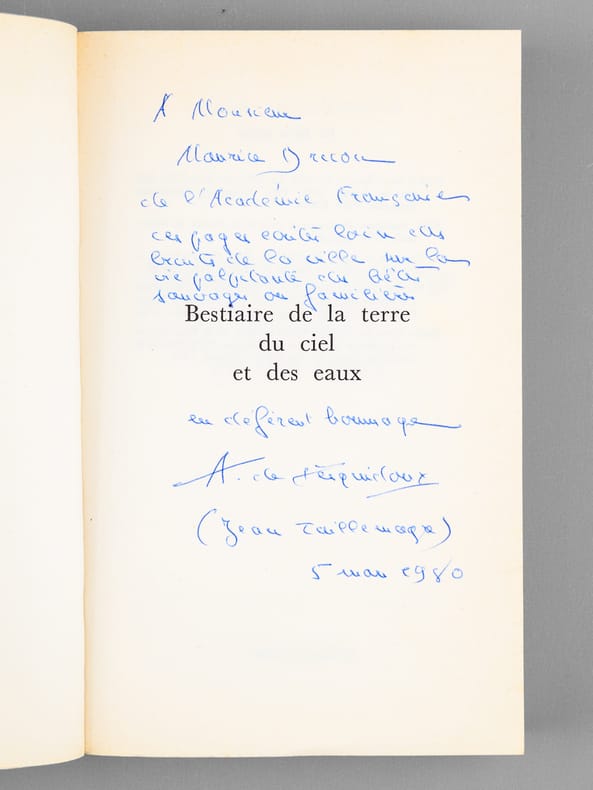 A Monsieur
Maurice Druon
de l'Académie Française
ces pages écrites loin des
bruits de la ville sur la
vie palpitante des bêtes
sauvages ou familières
Bestiaire de la terre
du ciel
et des eaux
en déférent hommage
A. de
(Jean Taillemagre)
5 mars 1980